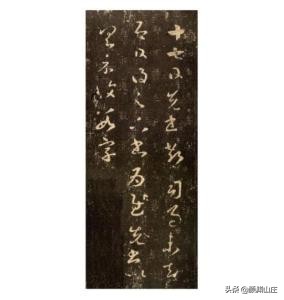 十七日先書郗司馬未去
即日得足下書為慰先書以
具示復數字
头条@藤湖山庄